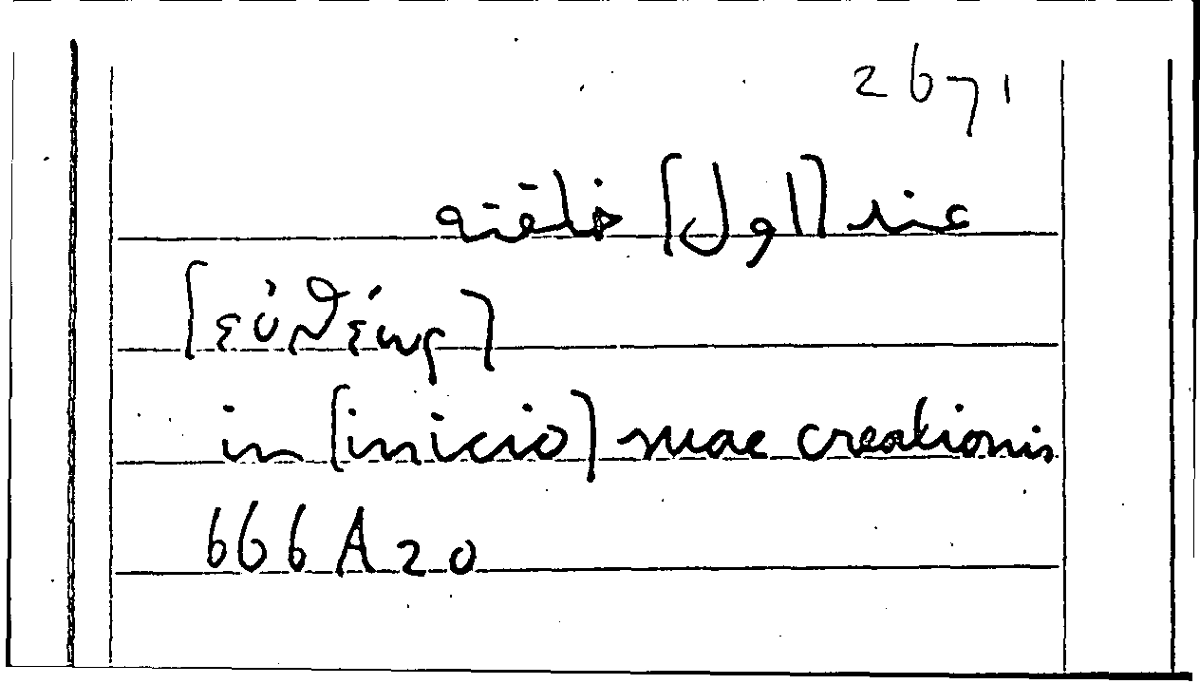 2671
عند [اول] خلقته
[εὐθέως]
in [inicio] suae creationis
666 A 20